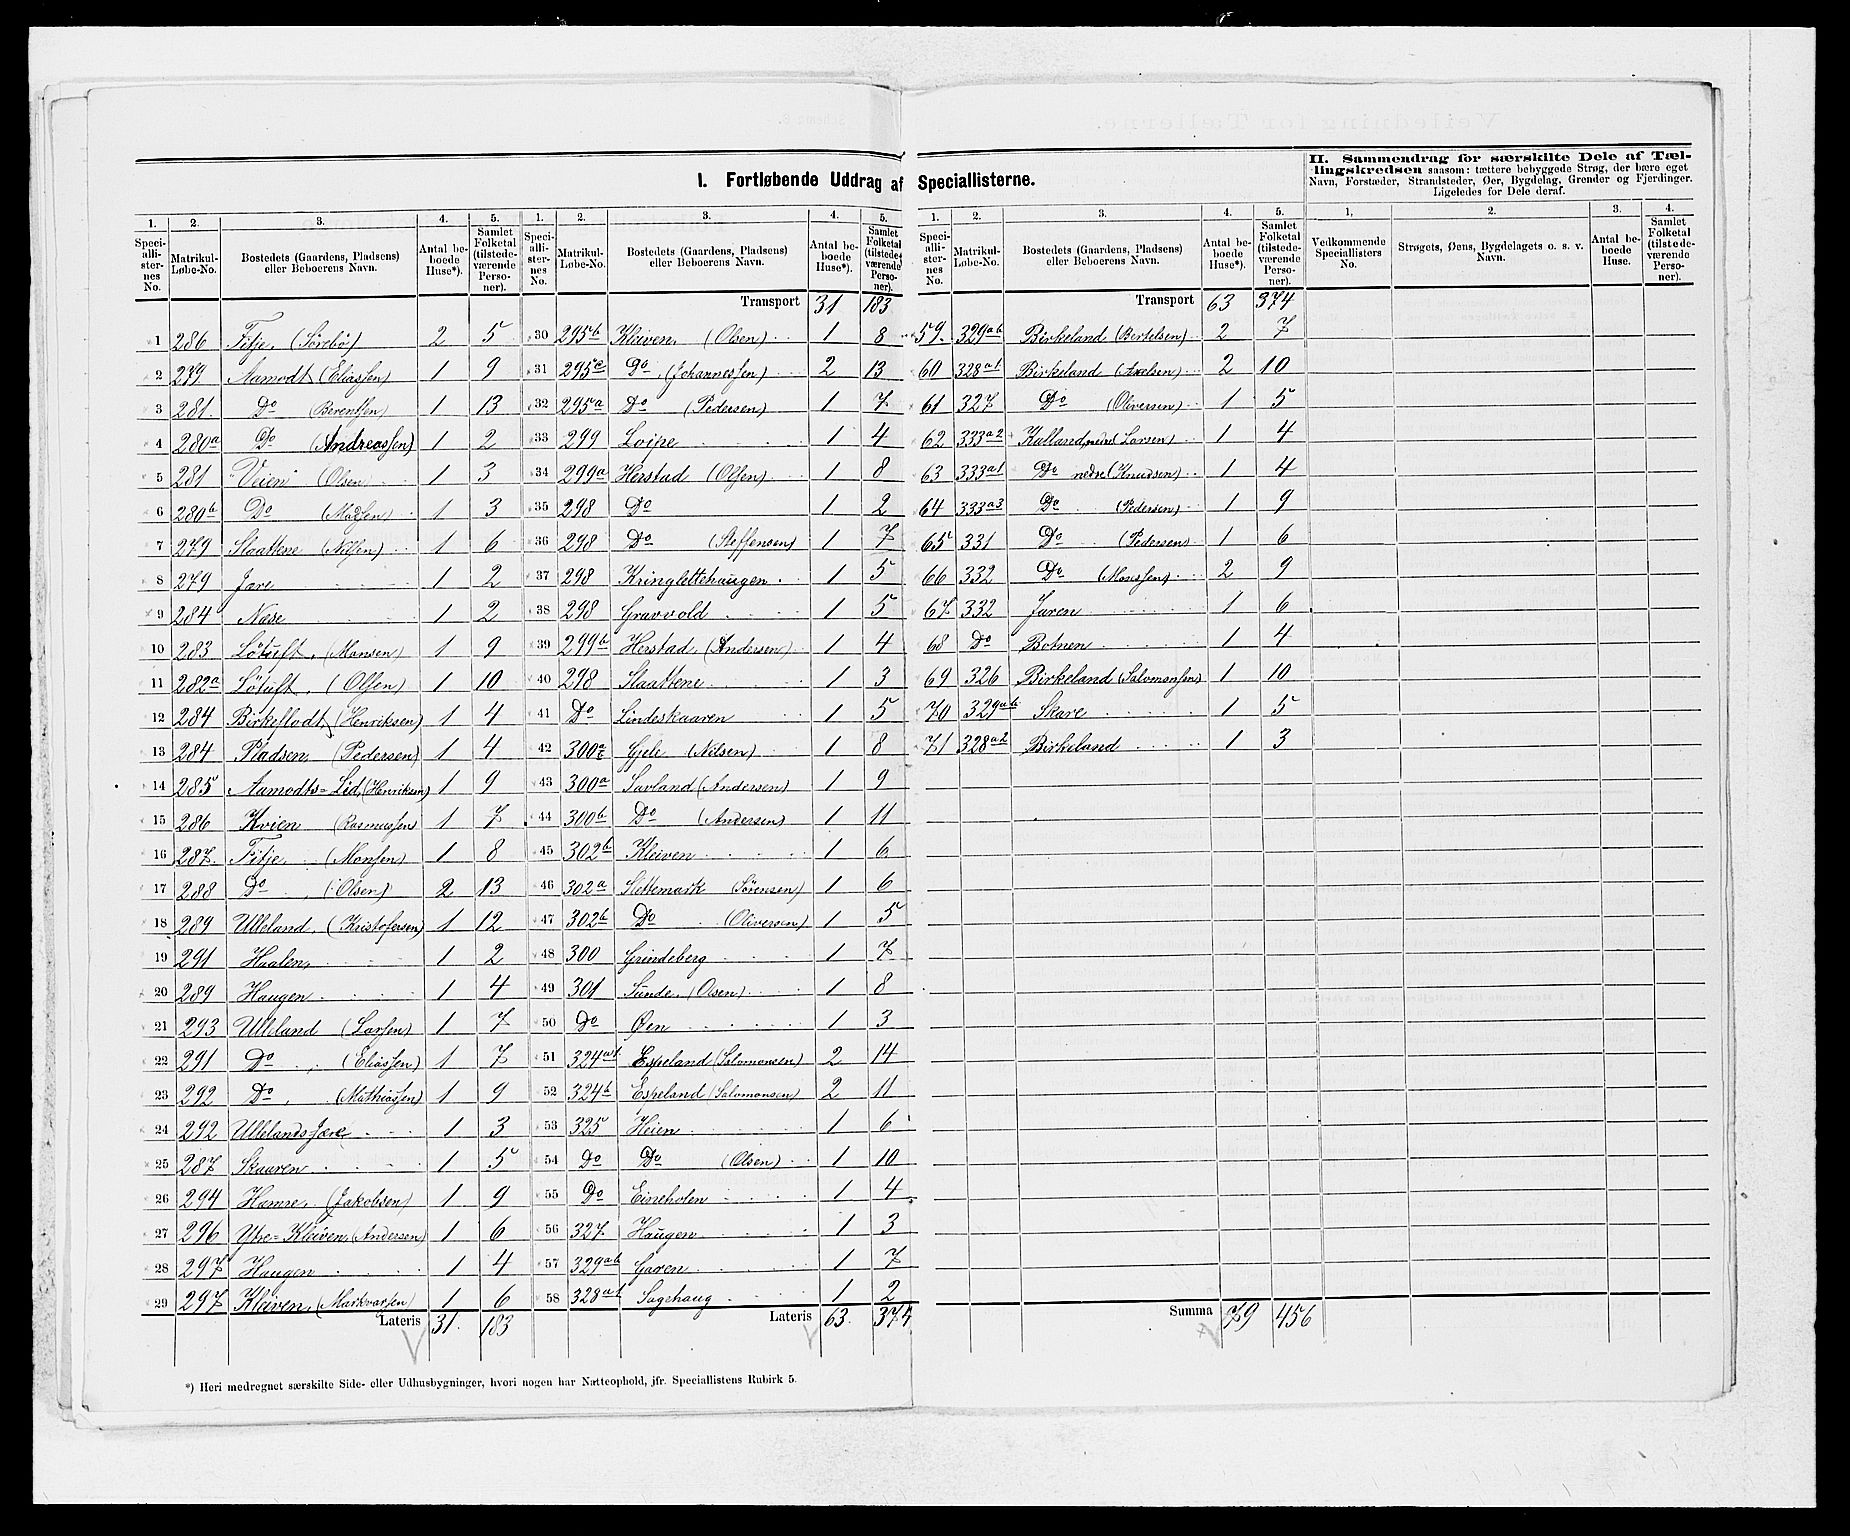 I. Fortløbende Uddrag af Speciallisterne.
II. Sammendrag for særskilte Dele af Tæl-
lingskredsen saasom: tættere bebyggede Strøg, der bære eget
Navn, Forstæder, Strandsteder, Øer, Bygdelag, Grender og Fjerdinger.
Ligeledes for Dele deraf.
1. 2. 3. 4. 5. 1. 2. 3. 4. 5. 1. 2. 3. 4. 5. 1. 2. 3. 4.
Speci-alli-ster-nes No. Matrikul-Løbe-No. Bostedets (Gaardens, Pladsens) eller Beboerens Navn. Antal be-boede Huse*). Samlet Folketal (tilstede-værende Perso-ner).
Speci-alli-ster-nes No. Matrikul-Løbe-No. Bostedets (Gaardens, Pladsens) eller Beboerens Navn. Antal be-boede Huse*). Samlet Folketal (tilstede-værende Perso-ner).
Speci-alli-ster-nes No. Matrikul-Løbe-No. Bostedets (Gaardens, Pladsens) eller Beboerens Navn. Antal be-boede Huse*). Samlet Folketal (tilstede-værende Perso-ner).
Vedkommende Speciallisters No. Strøgets, Øens, Bygdelagets o. s. v. Navn. Antal be-boede Huse. Samlet Folketal (tilstede-værende Perso-ner).
1 286 Fitje, (Sörebö) 2 5
2 279 Aamodt (Eliassen) 1 9
3 281. Do (Berentsen) 1 13
4 280a Do (Andreassen) 1 2
5 281 Veien (Olsen) 1 3
6 280b Do (Madsen) 1 3
7 279 Slaattene (Nilsen) 1 6
8 279 Jare 1 2
9 284 Nase 1 2
10 283 Lötuft, (Monsen) 1 9
11 282a Lötuft, (Olsen) 1 10
12 284 Birkeflodt, (Henriksen) 1 4
13 284 Pladsen (Pedersen) 1 4
14 285 Aamodts=Lid, (Henriksen) 1 9
15 286 Kvien (Rasmussen) 1 7
16 287. Fitje (Monsen) 1 8
17 288 Do, (Olsen) 2 13
18 289 Ulleland, (Kristofersen) 1 12
19 291 Haalen, 1 2
20 289 Haugen 1 4
21 293 Ulleland (Larsen) 1 7
22 291 Do, (Eliassen) 1 7
23 292 Do, (Mathiassen) 1 9
24 292 Ullelands Jare 1 3
25 287 Skauren 1 5
26 294 Hamre, (Jakobsen) 1 9
27 296 Ytre=Kleiven, (Andersen) 1 6
28 297 Haugen 1 4
29 297 Kleiven, (Markvarsen) 1 6
Lateris 31. 183
Transport 31 183
30 295b Kleiven, (Olsen) 1 8
31 295c Do, (Johannessen) 2 13
32 295a Do (Pedersen) 1 7
33 299 Loipe 1 4
34 299a Herstad (Olsen) 1 8
35 298 Do 1 2
36 298 Do (Steffensen) 1 7
37 298 Kringlettehaugen 1 5
38 298 Gravvold 1 5
39 299b Herstad, (Andersen) 1 4
40 298 Slaattene 1 3
41 Do Lindeskaaren 1 5
42 300 Gjele (Nilsen) 1 8
43 300a Savland (Andersen) 1 9
44 300b Do (Andersen) 1 11
45 302b Kleiven 1 6
46 302a Slettemark (Sörensen) 1 6
47 302b Do (Oliversen) 1 5
48 300 Grindeberg 1 7
49 301 Sunde, (Olsen) 1 8
50 Do Øen 1 3
51 324a1 Espeland (Salomonsen) 2 14
52 324b Espeland (Salomonsen) 2 11
53 325 Heien 1 6
54 Do Do (Olsen) 1 10
55 Do Eineholen 1 4
56 327. Haugen 1 3
57 329ab Garen 1 7
58 328a1 Sagehaug 1 2
Lateris 63. 374
Transport 63 374
59. 329ab Birkeland (Bertelsen) 2 7
60 328a1 Birkeland (Axelsen) 2 10
61 327 Do (Oliversen) 1 5
62 333a2 Kulland, nedre Larsen) 1 4
63 333a1 Do nedre (Knudsen) 1 4
64 333a3 Do (Pedersen) 1 9
65 331 Do (Pedersen) 1 6
66 332 Do (Monssen) 2 9
67 332 Jaren 1 6
68 Do Botnen 1 4
69 326 Birkeland (Salomonsen) 1 10
70 329ab Skare 1 5
71 328a2 Birkeland 1 3
Summa 79 456
*) Heri medregnet særskilte Side- eller Udhusbygninger, hvori nogen har Natteophold, jfr. Speciallistens Rubirk 5.